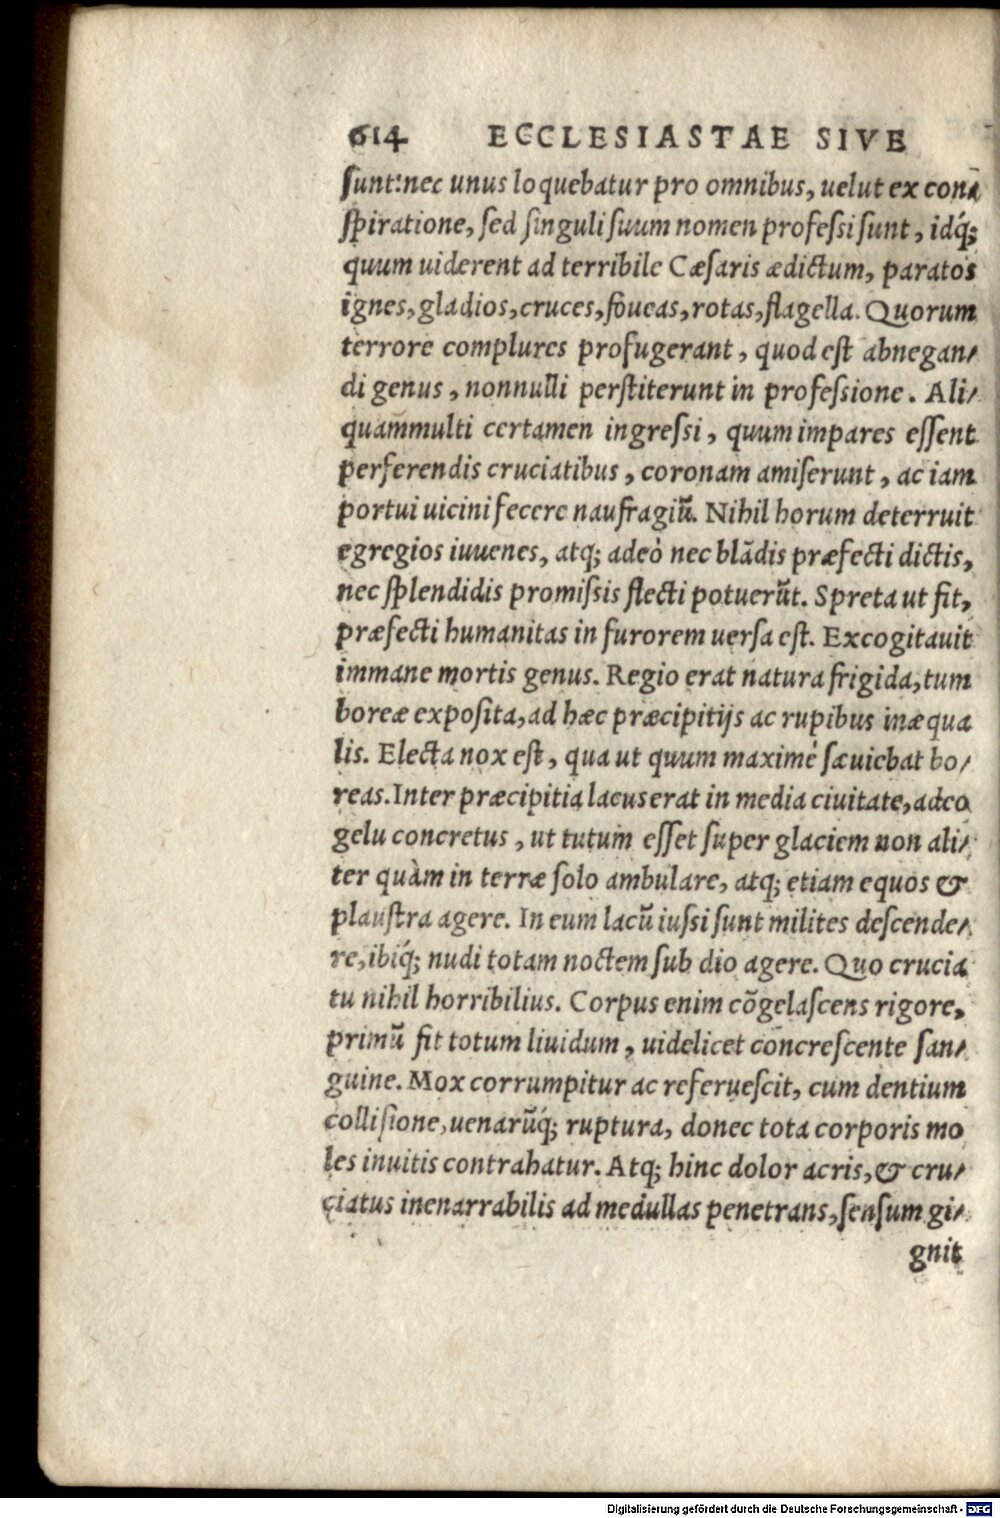 614 ECCLESIASTAE SIVE
ſunt:nec unus loquebatur pro omnibus, uelut ex con⸗
ſpiratione, ſed ſinguli ſuum nomen profeſsi ſunt, idq́;
quum uiderent ad terribile Cæſaris ædictum, paratos
ignes, gladios, cruces, foueas, rotas, flagella. Quorum
terrore complures profugerant, quod eſt abnegan⸗
di genus, nonnulli perſtiterunt in profeſsione. Ali⸗
quam̃multi certamen ingreſsi, quum impares eſſent
perferendis cruciatibus, coronam amiſerunt, ac iam
portui uicini fecere naufragiū. Nihil horum deterruit
egregios iuuenes, atq; adeò nec blādis præfecti dictis,
nec ſplendidis promiſsis flecti potuerūt. Spreta ut fit,
præfecti humanitas in furorem uerſa eſt. Excogitauit
immane mortis genus. Regio erat natura frigida, tum
boreæ expoſita, ad hæc præcipitijs ac rupibus inæqua
lis. Electa nox eſt, qua ut quum maximè ſæuiebat bo⸗
reas. Inter præcipitia lacus erat in media ciuitate, adeo
gelu concretus, ut tutum eſſet ſuper glaciem non ali⸗
ter quàm in terræ ſolo ambulare, atq; etiam equos &
plauſtra agere. In eum lacū iuſsi ſunt milites deſcende⸗
re, ibiq́; nudi totam noctem ſub dio agere. Quo crucia
tu nihil horribilius. Corpus enim cōgelaſcens rigore,
primū fit totum liuidum, uidelicet concreſcente ſan⸗
guine. Mox corrumpitur ac referueſcit, cum dentium
colliſione, uenarūq́; ruptura, donec tota corporis mo
les inuitis contrahatur. Atq; hinc dolor acris, & cru⸗
ciatus inenarrabilis ad medullas penetrans, ſenſum gi⸗
gnit
Digitalisierung gefördert durch die Deutsche Forschungsgemeinschaft - DFG